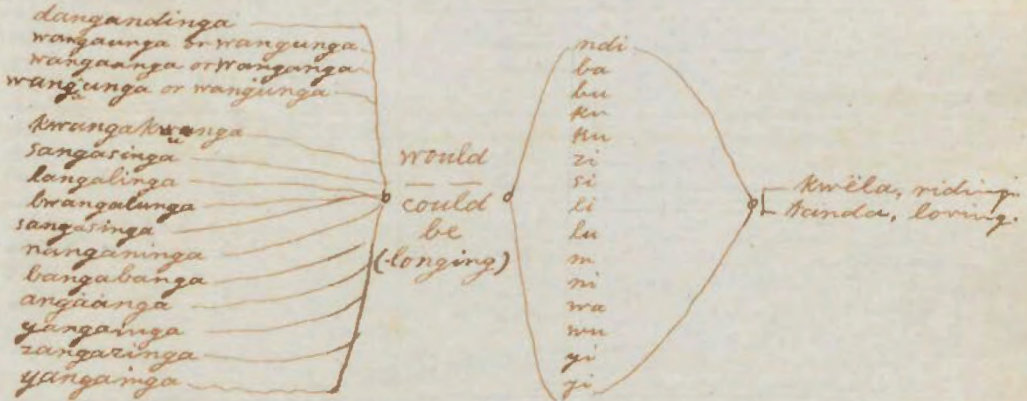 dangandinga
wangaunga or wangunga
wangaanga or wanganga
wangiunga or wangunga
kwangakunga
sangasinga
langalinga
bwangalunga
sangasinga
nanganinga
bangabanga
angaanga
yangainga
zangazinga
yangainga
would
could
be
(longing)
ndi
ba
bu
ku
ku
zi
si
li
lu
m
ni
wa
wu
yi
yi
kwëla, riding.
tanda, loving.